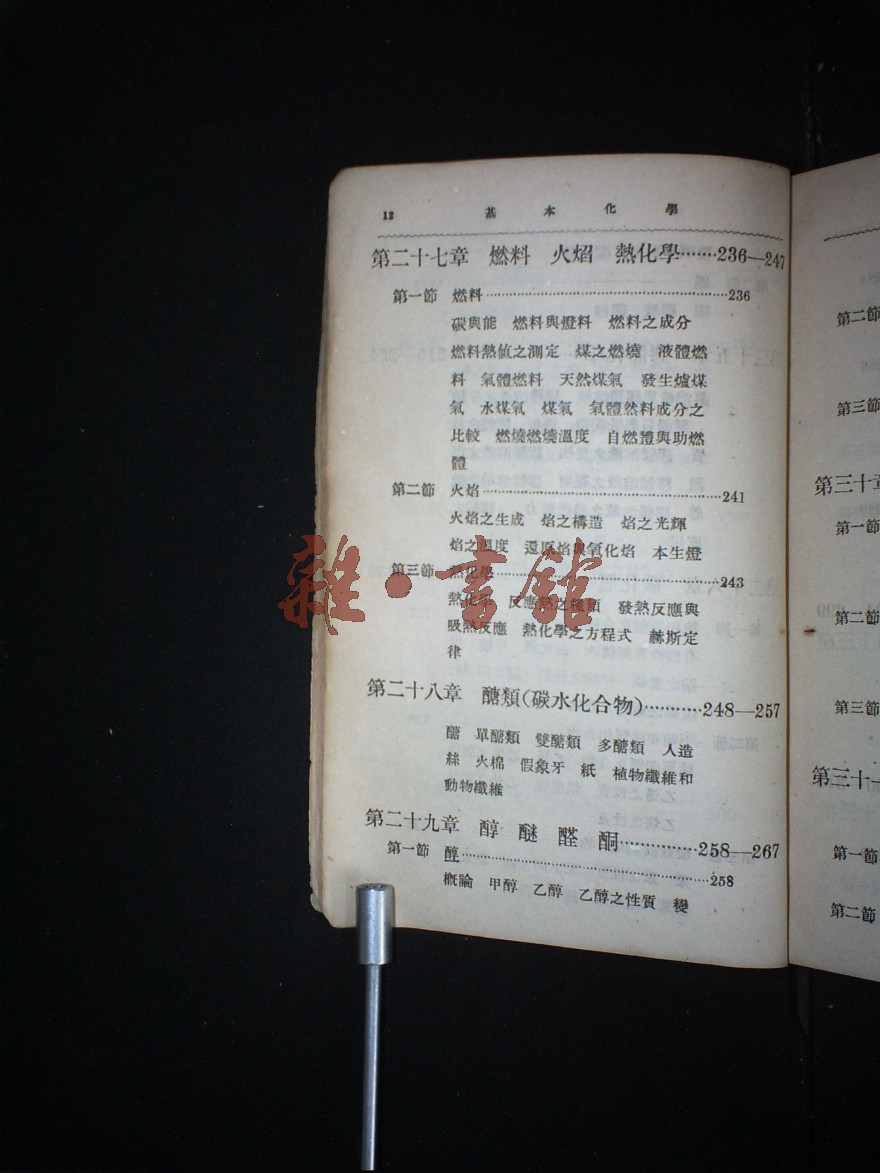 12 基本化學
第二十七章 燃料 火焰 熱化學………236—247
第一節 燃料………236
碳與能 燃料與燈料 燃料之成分
燃料熱値之測定 煤之燃燒 液體燃
料 氣體燃料 天然煤氣 發生爐煤
氣 水煤氣 煤氣 氣體然料成分之
比較 燃燒燃燒溫度 自燃體與助燃
體
第二節 火焰………241
火焰之生成 焰之構造 焰之光輝
焰之溫度 還原焰與氧化焰 本生燈
第三節 熱化學………243
熱化學 反應熱之種類 發熱反應與
吸熱反應 熱化學之方程式 赫斯定
律
第二十八章 醣類(碳水化合物)………248—257
醣 單醣類 雙醣類 多醣類 人造
絲 火棉 假象牙 紙 植物纖維和
動物纖維
第二十九章 醇 醚 醛 酮………258—267
第一節 醇………258
概論 甲醇 乙醇 乙醇之性質 變
雜·書館
第二節
第三節
第三十章
第一節
第二節
第三節
第三十一
第一節
第二節